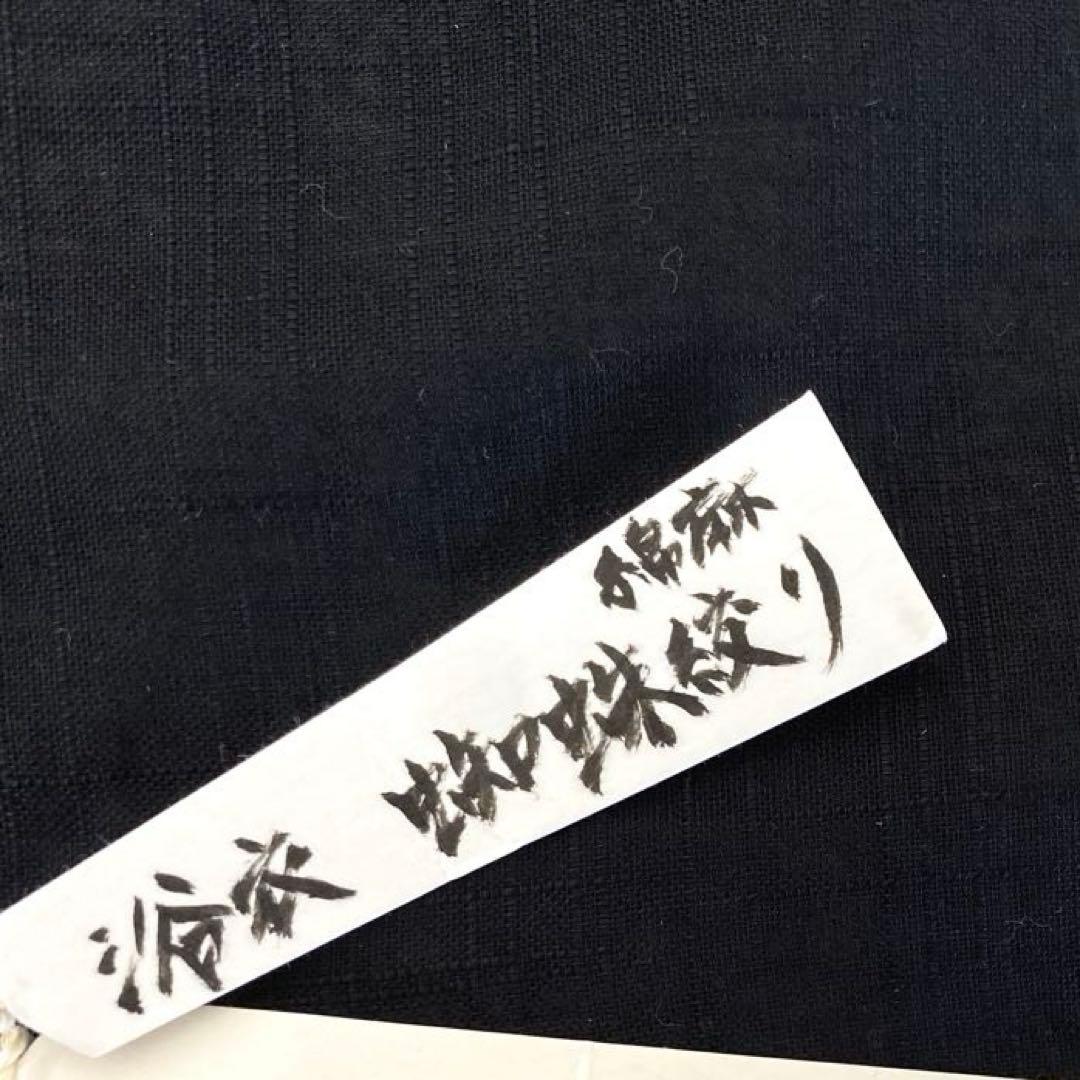 綿麻
浴衣 蜘蛛絞り